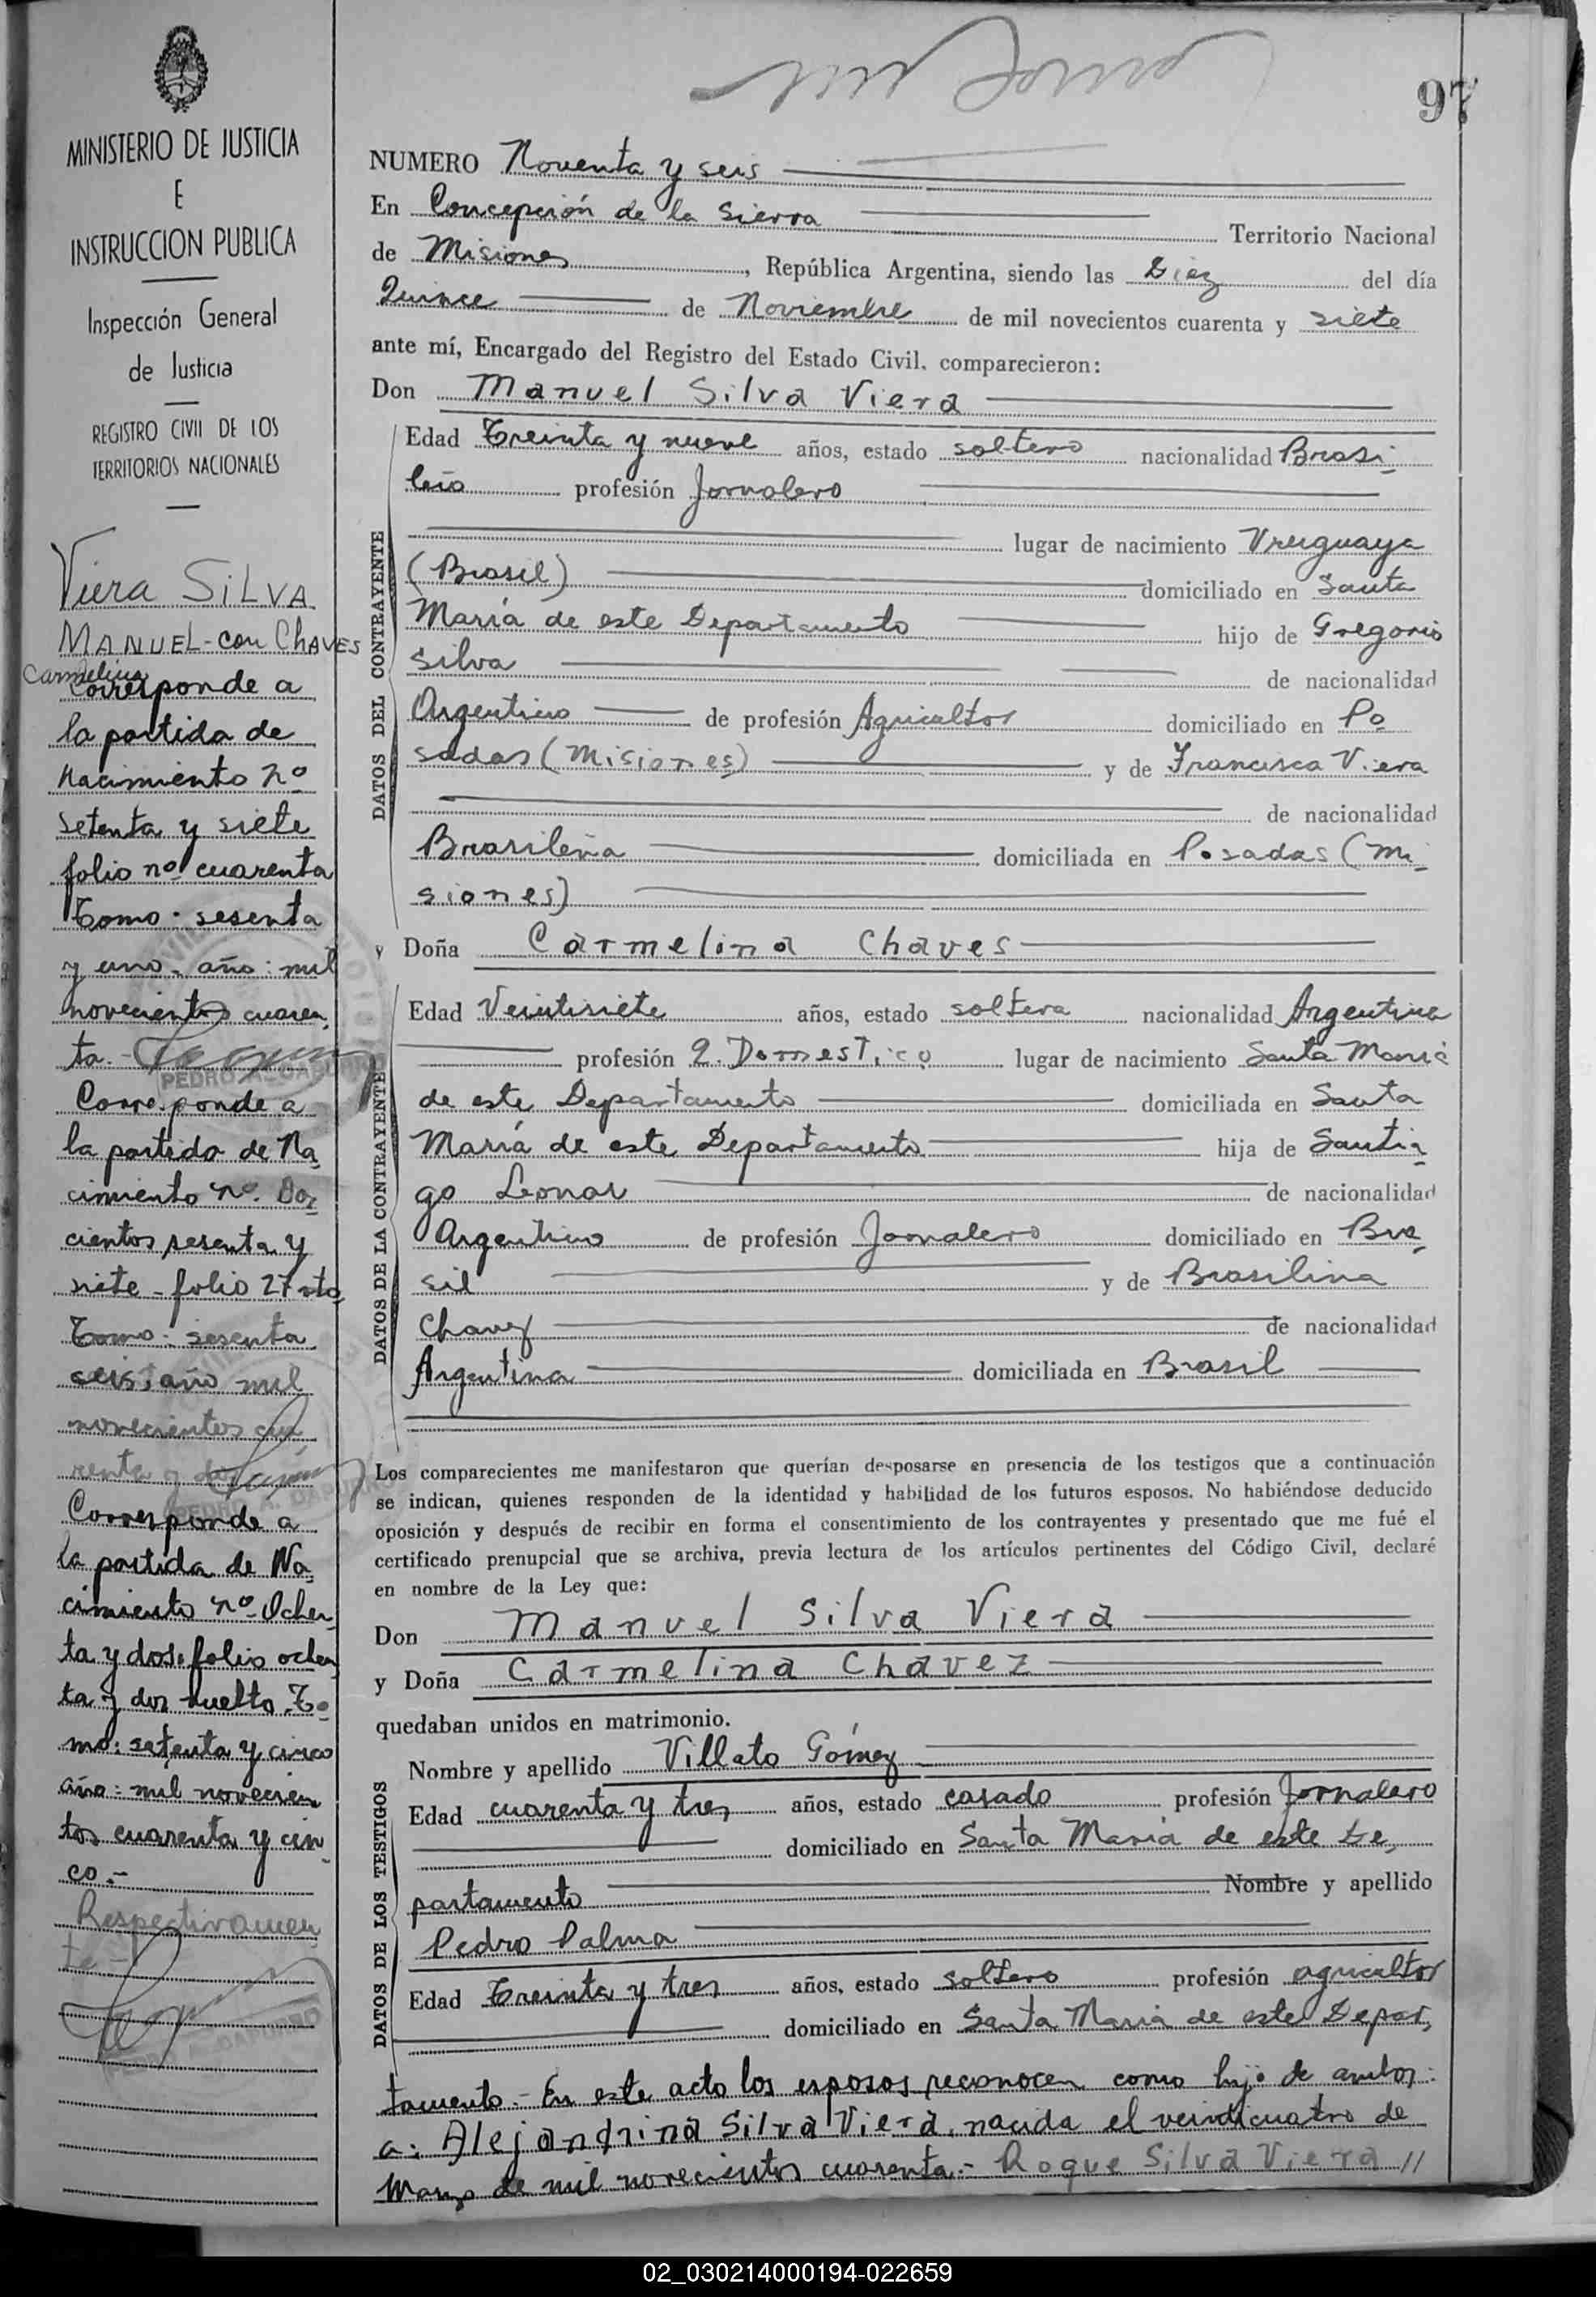 97
MINISTERIO DE JUSTICIA
E
INSTRUCCION PUBLICA
Inspección General
de Justicia
REGISTRO CIVIL DE LOS
TERRITORIOS NACIONALES
Viera SILVA
MANUEL - con CHAVES
Carmelina
Corresponde a
la partida de
Nacimiento nº
setenta y siete
folio nº cuarenta
Tomo: sesenta
y uno - año: mil
novecientos cuaren
ta.-
PEDRO A. CAPURRO
Corresponde a
la partida de Na
cimiento nº Dos
cientos sesenta y
siete - folio 27 vto
Tomo: sesenta
seis, año mil
novecientos cua
renta y dos
PEDRO A. CAPURRO
Corresponde a
la partida de Na
cimiento nº Ochen
ta y dos folio ochen
ta y dos vuelto To
mo: setenta y cinco
año: mil novecien
tos cuarenta y cin
co.-
Respectivamen
te -
PEDRO A. CAPURRO
NUMERO Noventa y seis
En Concepción de la Sierra Territorio Nacional
de Misiones, República Argentina, siendo las Diez del día
Quince de Noviembre de mil novecientos cuarenta y siete
ante mí, Encargado del Registro del Estado Civil, comparecieron:
Don Manuel Silva Viera
DATOS DEL CONTRAYENTE
Edad Treinta y nueve años, estado soltero nacionalidad Brasi
leño profesión Jornalero
lugar de nacimiento Uruguaya
(Brasil) domiciliado en Santa
María de este Departamento hijo de Gregorio
Silva de nacionalidad
Argentino de profesión Agricultor domiciliado en Po
sadas (Misiones) y de Francisca Viera
de nacionalidad
Brasileña domiciliada en Posadas (Mi
siones)
y Doña Carmelina Chaves
DATOS DE LA CONTRAYENTE
Edad Veintisiete años, estado soltera nacionalidad Argentina
profesión Q. Domestico lugar de nacimiento Santa María
de este Departamento domiciliada en Santa
María de este Departamento hija de Santia
go Leonar de nacionalidad
Argentino de profesión Jornalero domiciliado en Bra
sil y de Brasilina
Chavez de nacionalidad
Argentina domiciliada en Brasil
Los comparecientes me manifestaron que querían desposarse en presencia de los testigos que a continuación
se indican, quienes responden de la identidad y habilidad de los futuros esposos. No habiéndose deducido
oposición y después de recibir en forma el consentimiento de los contrayentes y presentado que me fué el
certificado prenupcial que se archiva, previa lectura de los artículos pertinentes del Código Civil, declaré
en nombre de la Ley que:
Don Manuel Silva Viera
y Doña Carmelina Chavez
quedaban unidos en matrimonio.
DATOS DE LOS TESTIGOS
Nombre y apellido Villato Gómez
Edad cuarenta y tres años, estado casado profesión Jornalero
domiciliado en Santa María de este De
partamento Nombre y apellido
Pedro Palma
Edad Treinta y tres años, estado soltero profesión agricultor
domiciliado en Santa María de este Depar
tamento.- En este acto los esposos reconocen como hijo de ambos:
a: Alejandrina Silva Viera, nacida el veinticuatro de
Marzo de mil novecientos cuarenta.- Roque Silva Viera //
02_030214000194-022659